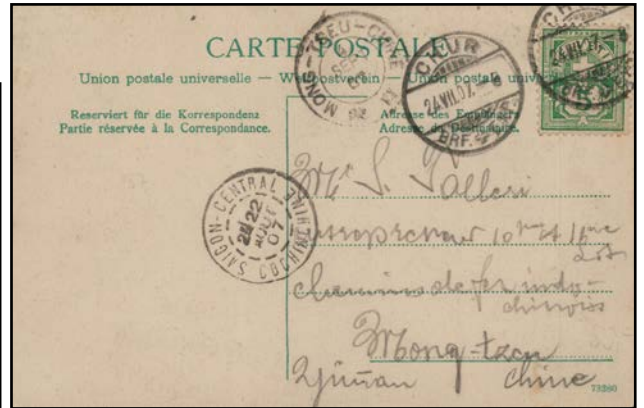 CARTE POSTALE
Union postale universelle — Weltpostverein — Union postale universelle
Reserviert für die Korrespondenz
Partie réservée à la Correspondance.
Adresse des Empfängers
Adresse du Destinataire.
MONG-TSEU-CHINE
SEPT
CHUR
24.VII.07
BRF.
CHUR
24.VII.07
BRF.
SAIGON-CENTRAL COCHINCHINE
22
AOUT
07
Mr S. Palleri
Entrepreneur 10me et 11me
Lots
chemins de fer indo-
chinois
Mong-tzeu
Yünnan Chine
73280